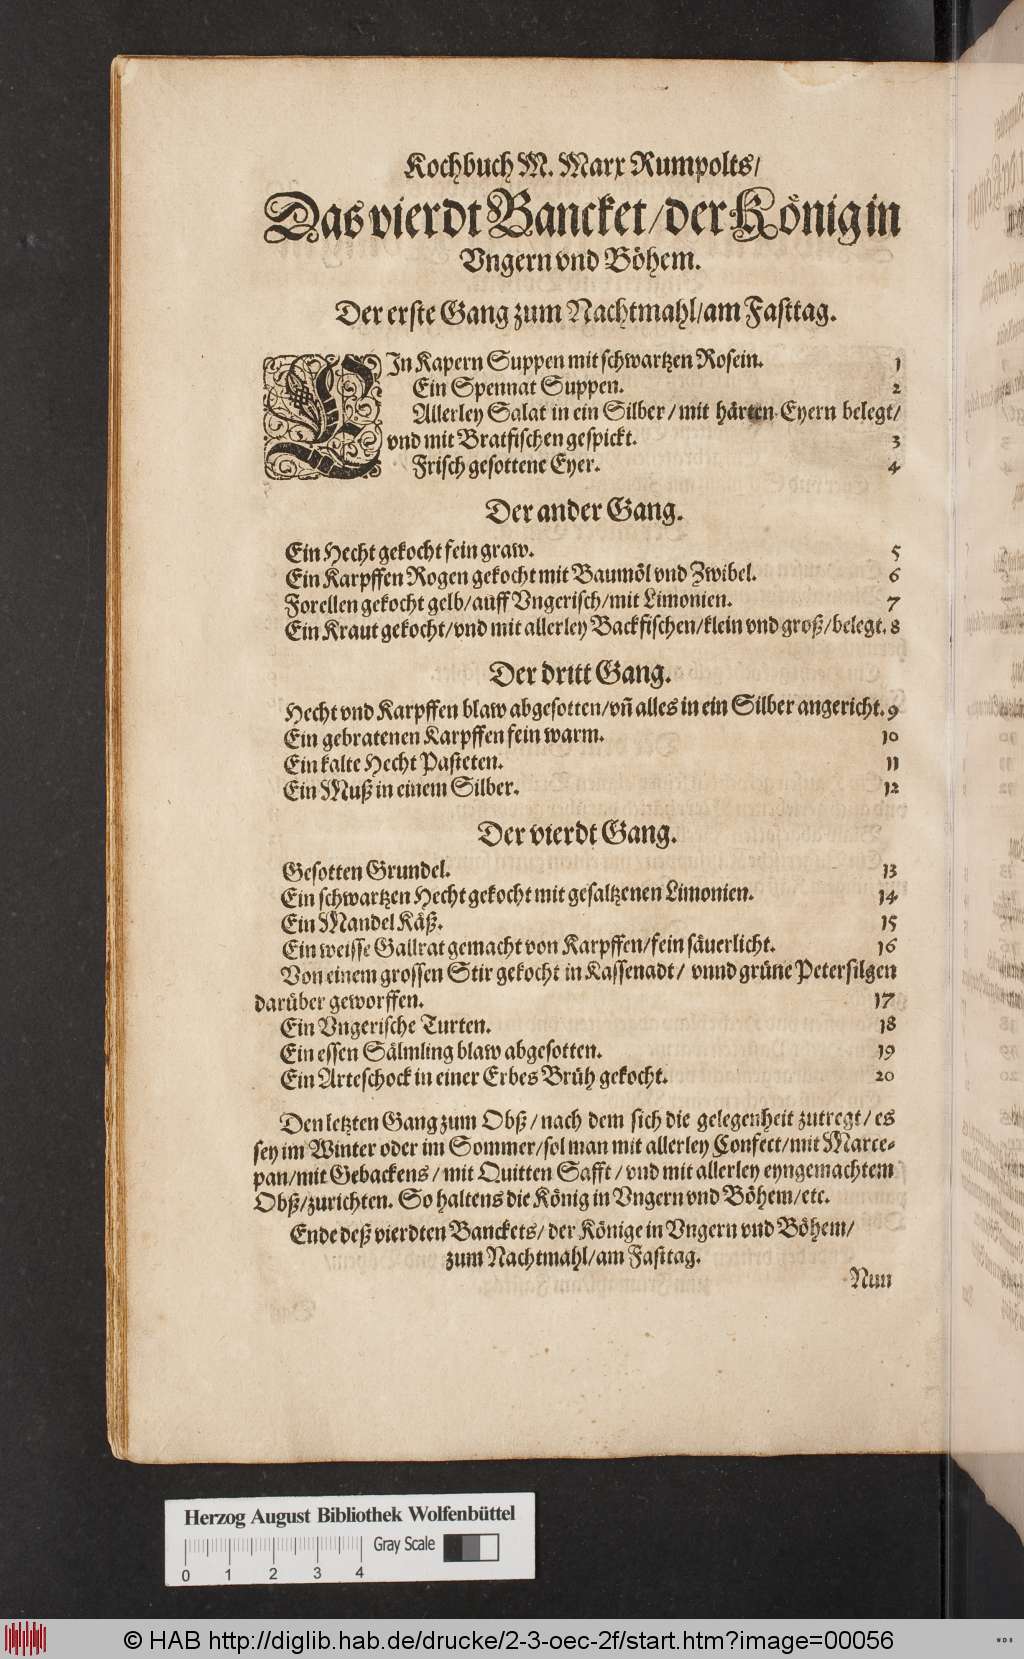 Kochbuch M. Marx Rumpolts/
Das vierdt Bancket/der König in
Vngern vnd Böhem.
Der erste Gang zum Nachtmahl/am Fasttag.
EIn Kapern Suppen mit schwartzen Rosein. 1
Ein Spennat Suppen. 2
Allerley Salat in ein Silber/mit härten Eyern belegt/
vnd mit Bratfischen gespickt. 3
Frisch gesottene Eyer. 4
Der ander Gang.
Ein Hecht gekocht fein graw. 5
Ein Karpffen Rogen gekocht mit Baumöl vnd Zwibel. 6
Forellen gekocht gelb/auff Vngerisch/mit Limonien. 7
Ein Kraut gekocht/vnd mit allerley Backfischen/klein vnd groß/belegt. 8
Der dritt Gang.
Hecht vnd Karpffen blaw abgesotten/vñ alles in ein Silber angericht. 9
Ein gebratenen Karpffen fein warm. 10
Ein kalte Hecht Pasteten. 11
Ein Muß in einem Silber. 12
Der vierdt Gang.
Gesotten Grundel. 13
Ein schwartzen Hecht gekocht mit gesaltzenen Limonien. 14
Ein Mandel Käß. 15
Ein weisse Gallrat gemacht von Karpffen/fein säuerlicht. 16
Von einem grossen Stir gekocht in Kassenadt/ vnnd grüne Petersilgen
darüber geworffen. 17
Ein Vngerische Turten. 18
Ein essen Sälmling blaw abgesotten. 19
Ein Arteschock in einer Erbes Brüh gekocht. 20
Den letzten Gang zum Obß/nach dem sich die gelegenheit zutregt/es
sey im Winter oder im Sommer/sol man mit allerley Confect/mit Marce-
pan/mit Gebackens/mit Quitten Safft/vnd mit allerley eyngemachtem
Obß/zurichten. So haltens die König in Vngern vnd Böhem/etc.
Ende deß vierdten Banckets/der Könige in Vngern vnd Böhem/
zum Nachtmahl/am Fasttag.
Nun
Herzog August Bibliothek Wolfenbüttel
Gray Scale
0 1 2 3 4
© HAB http://diglib.hab.de/drucke/2-3-oec-2f/start.htm?image=00056